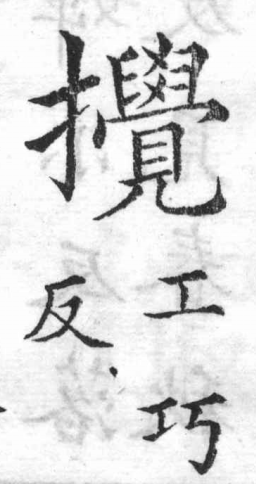 攪
工巧
反